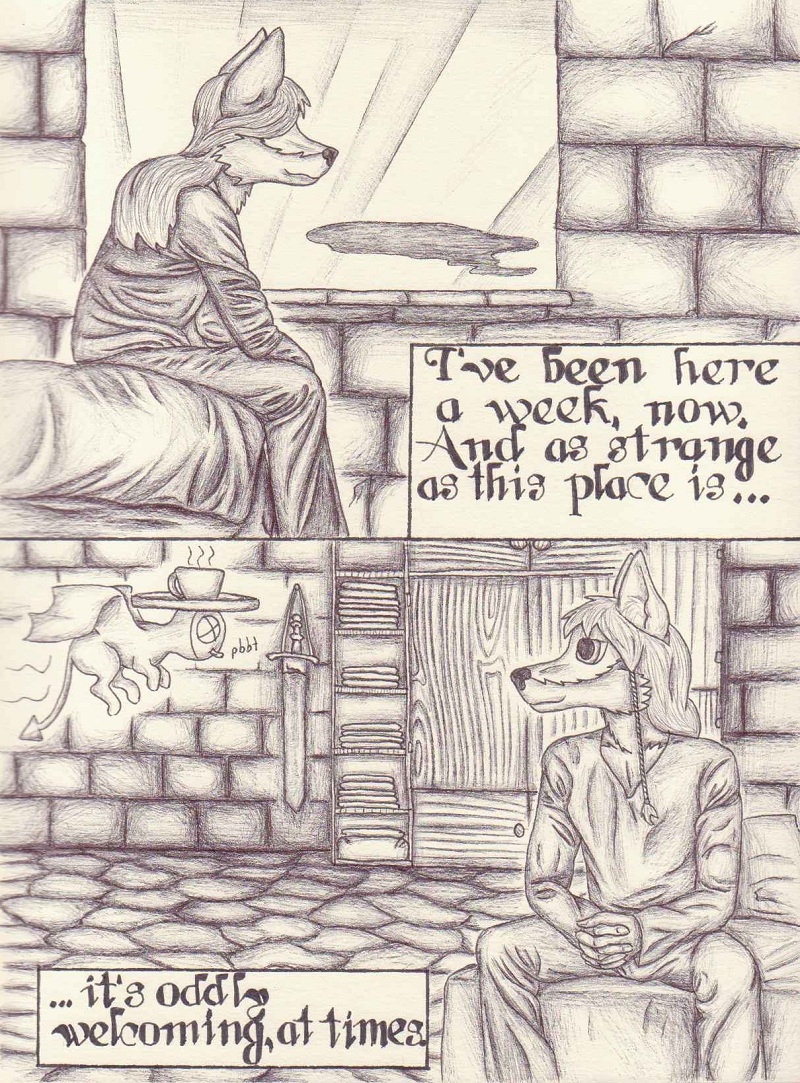 I've been here
a week, now.
And as strange
as this place is...
pbbt
...it's oddly
welcoming, at times.